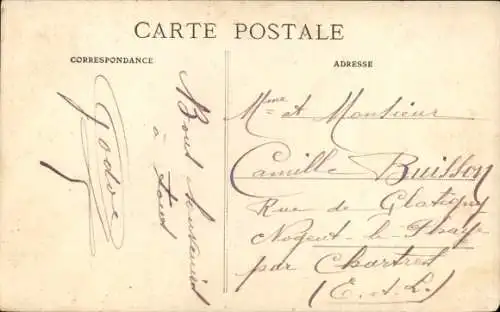 CARTE POSTALE
CORRESPONDANCE
ADRESSE
Bons Souvenirs
à tous
Godoc
Mme et Monsieur
Camille Buisson
Rue de Glatigny
Nogent-le-Phaye
par Chartres
(E. et L.)